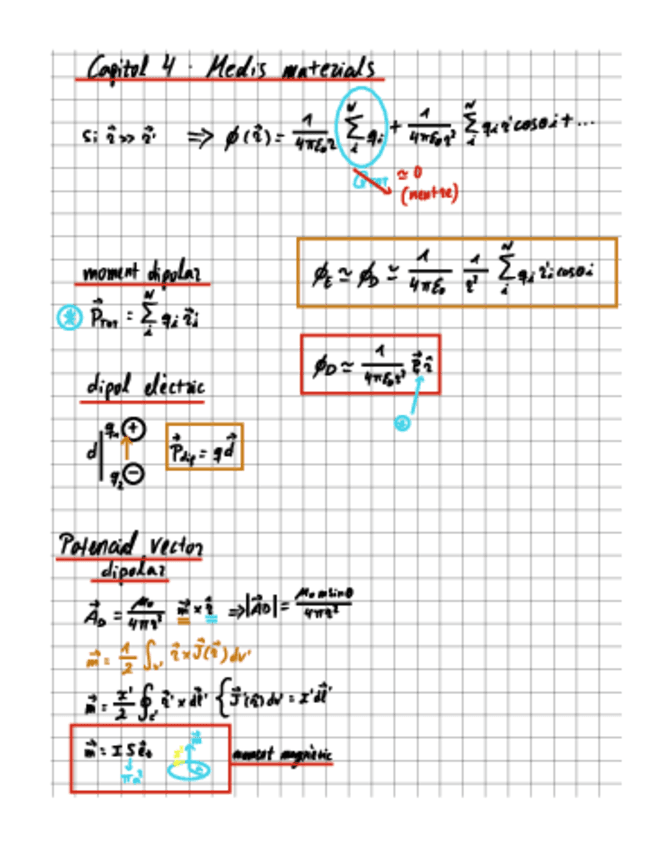 Capítol 4 · Medis materials
Si r⃗ >> r⃗' ⟹ ϕ(r⃗) = 1/4πε₀r ∑ᵢᴺ qᵢ + 1/4πε₀r² ∑ᵢᴺ qᵢ r' cosθᵢ + ...
≃ 0
(neutre)
moment dipolar
ϕ_E ≃ ϕ_D ≃ 1/4πε₀ 1/r² ∑ᵢᴺ qᵢ r'ᵢ cosθᵢ
* P⃗_TOT = ∑ᵢᴺ qᵢ r⃗ᵢ
ϕ_D ≃ 1/4πε₀r² P⃗ r̂
dipol elèctric
q₁ +
d
P⃗_dip = q d⃗
q₂ −
Potencial vector
dipolar
A⃗_D = μ₀/4πr² m⃗ × r̂ ⟹ |A⃗_D| = μ₀ m sinθ/4πr²
m⃗ = 1/2 ∫_v' r⃗ × J⃗(r⃗) dv'
m⃗ = I'/2 ∮_c' r⃗' × dl⃗' { J⃗'(r⃗) dv' = I' dl⃗'
m⃗ = I S
moment magnètic